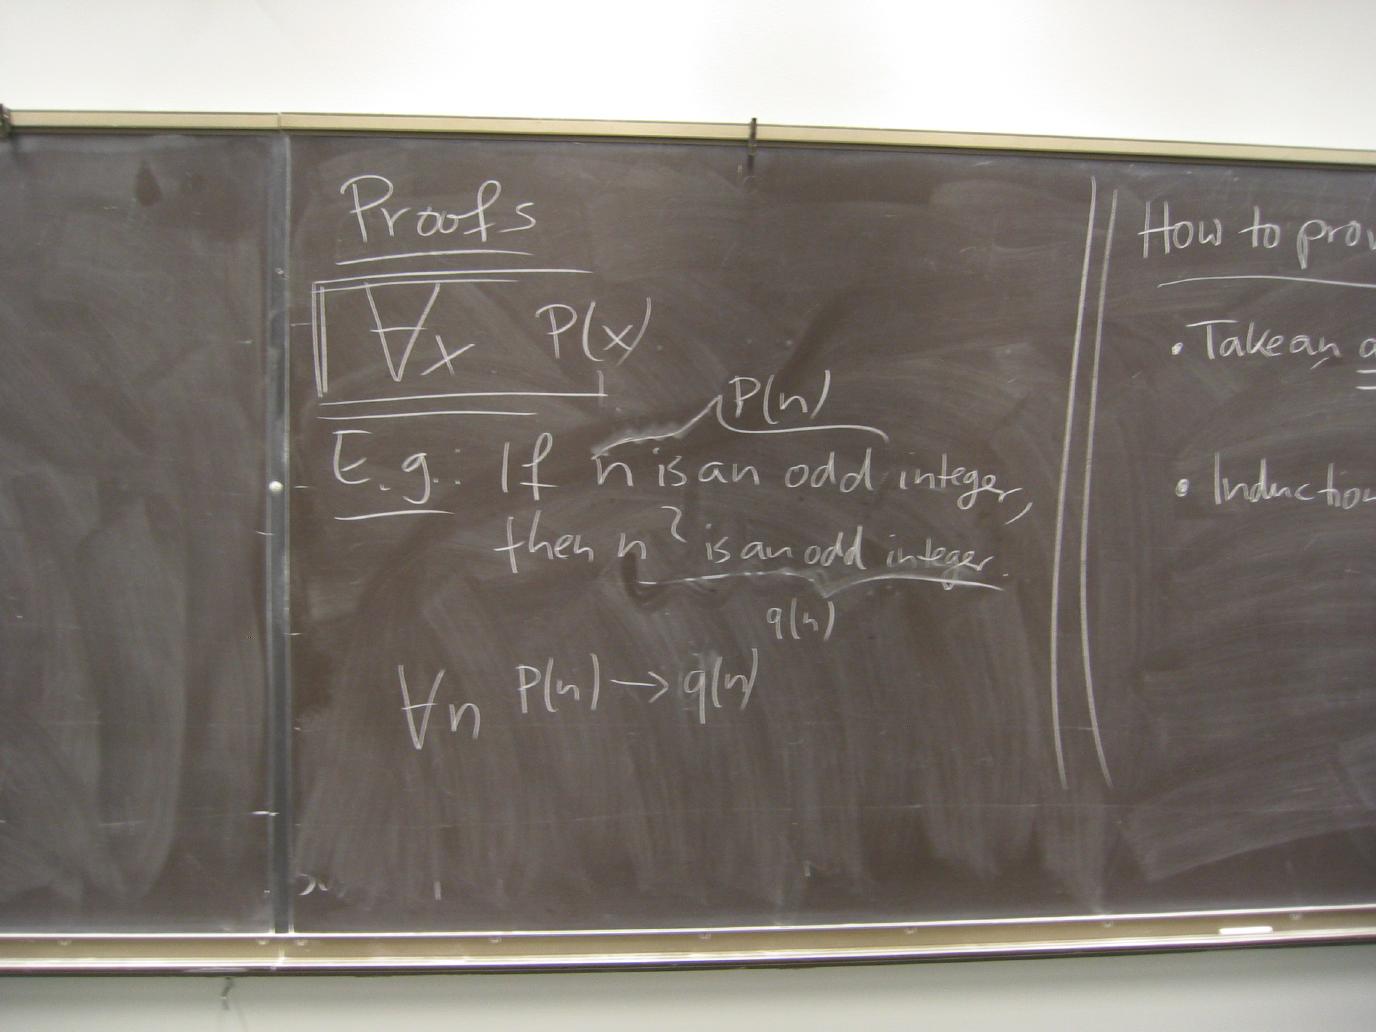 Proofs
∀x P(x)
P(n)
E.g.: If n is an odd integer,
then n² is an odd integer.
q(n)
∀n P(n) → q(n)
How to prov
• Take an
• Induction